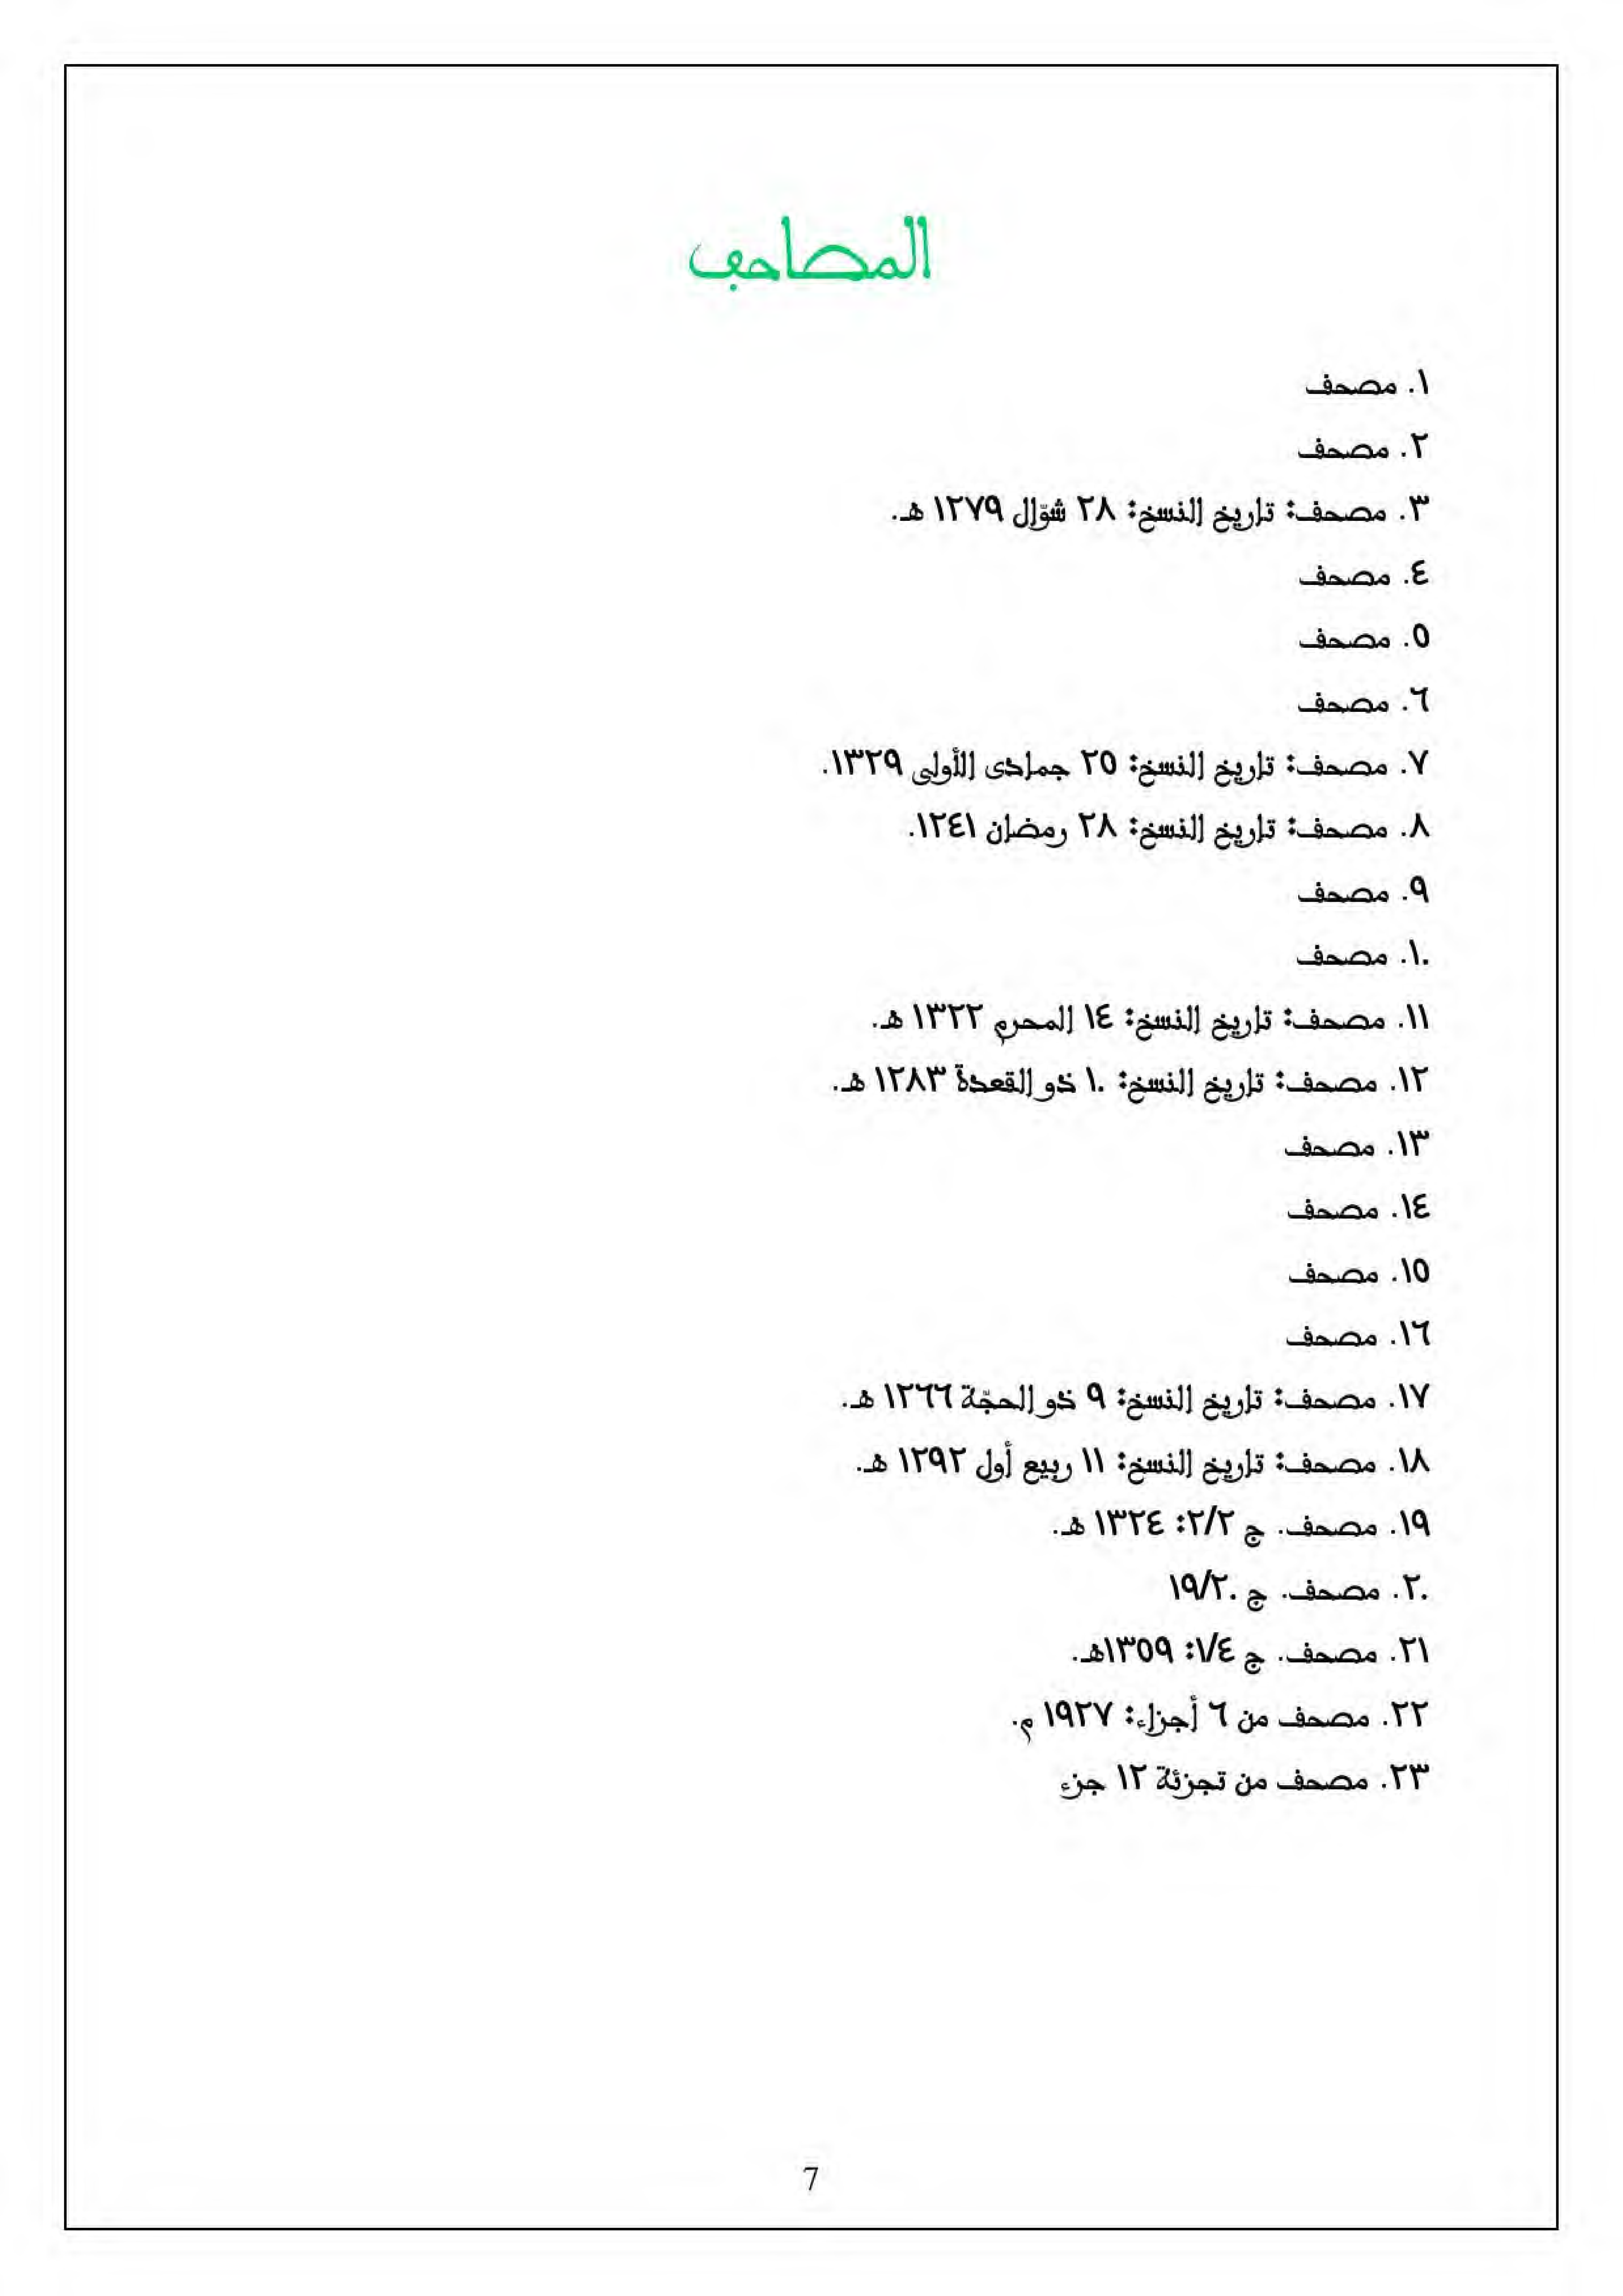 المصاحف
١. مصحف
٢. مصحف
٣. مصحف: تاريخ النسخ: ٢٨ شوّال ١٢٧٩ هـ.
٤. مصحف
٥. مصحف
٦. مصحف
٧. مصحف: تاريخ النسخ: ٢٥ جمادى الأولى ١٣٢٩.
٨. مصحف: تاريخ النسخ: ٢٨ رمضان ١٢٤١.
٩. مصحف
١٠. مصحف
١١. مصحف: تاريخ النسخ: ١٤ المحرم ١٣٢٢ هـ.
١٢. مصحف: تاريخ النسخ: ١٠ ذو القعدة ١٢٨٣ هـ.
١٣. مصحف
١٤. مصحف
١٥. مصحف
١٦. مصحف
١٧. مصحف: تاريخ النسخ: ٩ ذو الحجّة ١٢٦٦ هـ.
١٨. مصحف: تاريخ النسخ: ١١ ربيع أول ١٢٩٢ هـ.
١٩. مصحف. ج ٢/٢: ١٣٢٤ هـ.
٢٠. مصحف. ج ١٩/٢٠
٢١. مصحف. ج ١/٤: ١٣٥٩هـ.
٢٢. مصحف من ٦ أجزاء: ١٩٢٧ م.
٢٣. مصحف من تجزئة ١٢ جزء
7